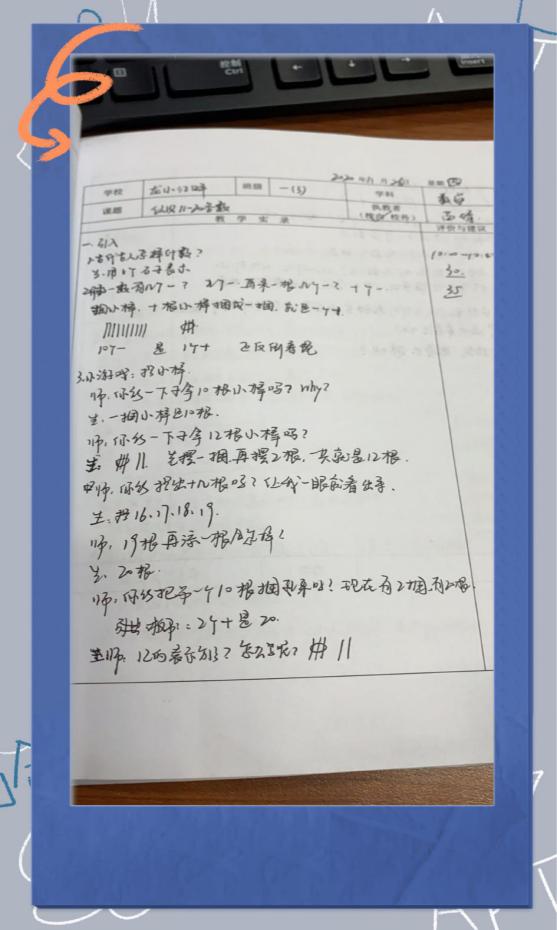 控制
Ctrl
Insert
2020年11月26日 星期四
学校 班级 一(3) 学科 数学
课题 认识11-20各数 执教者
(校内/校外)
教 学 实 录 评价与建议
一、引入
1.古时古人怎样计数?
生:用1个石子表示.
再来一根几个一? 十个一.
捆小棒,十根小棒捆成一捆,就是一个十.
10个一 是 1个十 还反倒着说
3.小游戏:摆小棒.
师:你能一下子拿10根小棒吗? why?
生:一捆小棒是10根.
师:你能一下子拿12根小棒吗?
生: 先摆一捆,再摆2根,共就是12根.
师:你能摆出十几根吗?让我一眼就看出来.
生:摆16、17、18、19.
师:19根再添一根是怎样?
生:20根.
师:你能把另一个10根捆起来吗?现在有2捆,有20根.
板书:2个十是20.
师:12的表示方法?怎么写呢?